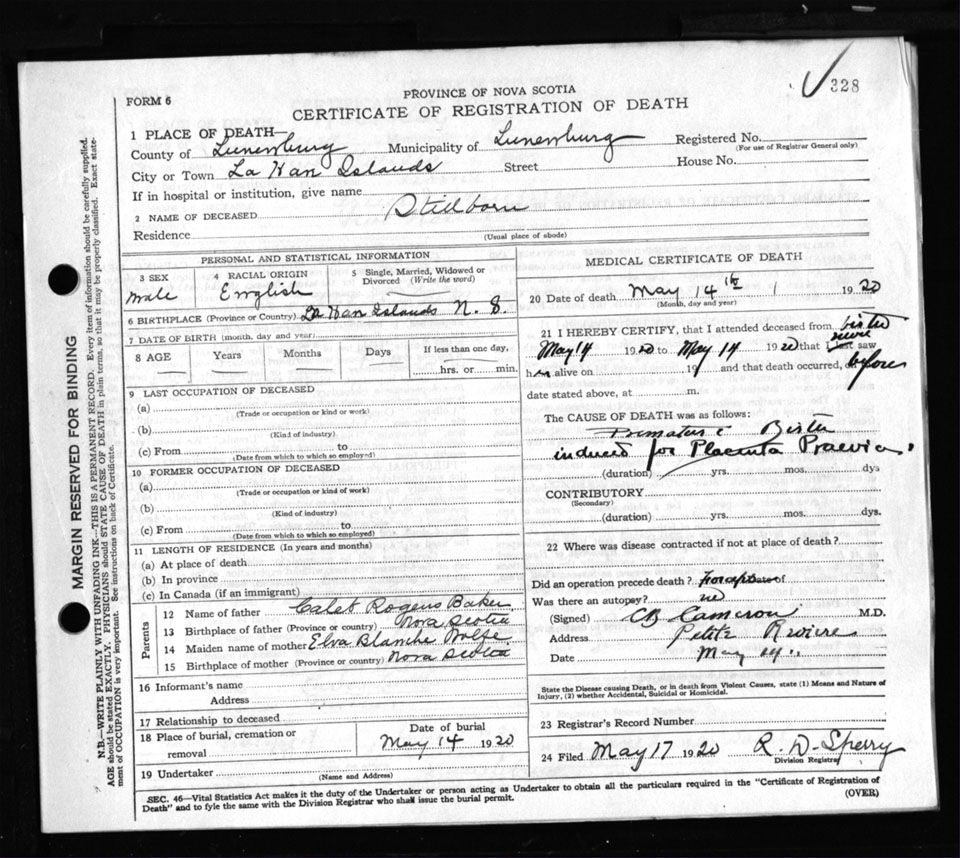 328
PROVINCE OF NOVA SCOTIA
FORM 6
CERTIFICATE OF REGISTRATION OF DEATH
1 PLACE OF DEATH—
County of Lunenburg Municipality of Lunenburg Registered No.
(For use of Registrar General only)
City or Town La Han Islands Street House No.
If in hospital or institution, give name
2 NAME OF DECEASED Stillborn
Residence
(Usual place of abode)
MARGIN RESERVED FOR BINDING
N.B.—WRITE PLAINLY WITH UNFADING INK—THIS IS A PERMANENT RECORD. Every item of information should be carefully supplied.
AGE should be stated EXACTLY. PHYSICIANS should STATE CAUSE OF DEATH in plain terms, so that it may be properly classified. Exact state-
ment of OCCUPATION is very important. See instructions on back of Certificate.
PERSONAL AND STATISTICAL INFORMATION
3 SEX
male
4 RACIAL ORIGIN
English
5 Single, Married, Widowed or
Divorced (Write the word)
6 BIRTHPLACE (Province or Country) La Han Islands N. S.
7 DATE OF BIRTH (month, day and year)
8 AGE Years Months Days If less than one day,
hrs. or min.
9 LAST OCCUPATION OF DECEASED
(a)
(Trade or occupation or kind or work)
(b)
(Kind of industry)
(c) From to
(Date from which to which so employed)
10 FORMER OCCUPATION OF DECEASED
(a)
(Trade or occupation or kind or work)
(b)
(Kind of industry)
(c) From to
(Date from which to which so employed)
11 LENGTH OF RESIDENCE (In years and months)
(a) At place of death
(b) In province
(c) In Canada (if an immigrant)
Parents
12 Name of father Caleb Rogers Baker
13 Birthplace of father (Province or country) Nova Scotia
14 Maiden name of mother Elva Blanche Wolfe
15 Birthplace of mother (Province or country) Nova Scotia
16 Informant's name
Address
17 Relationship to deceased
18 Place of burial, cremation or
removal
Date of burial
May 14 1920
19 Undertaker
(Name and Address)
MEDICAL CERTIFICATE OF DEATH
20 Date of death May 14th 1920
(Month, day and year)
21 I HEREBY CERTIFY, that I attended deceased from birth
May 14 1920 to May 14 1920 that I last saw
never
h alive on 19 and that death occurred, on before
date stated above, at m.
The CAUSE OF DEATH was as follows:
Premature Birth
induced for Placenta Praevia.
(duration) yrs. mos. dys
CONTRIBUTORY
(Secondary)
(duration) yrs. mos. dys.
22 Where was disease contracted if not at place of death?
Did an operation precede death?
Was there an autopsy? no
(Signed) Cameron M.D.
Address Petite Riviere
Date May 14
State the Disease causing Death, or in death from Violent Causes, state (1) Means and Nature of
Injury, (2) whether Accidental, Suicidal or Homicidal.
23 Registrar's Record Number
24 Filed May 17 1920 R. D. Sperry
Division Registrar
SEC. 46—Vital Statistics Act makes it the duty of the Undertaker or person acting as Undertaker to obtain all the particulars required in the "Certificate of Registration of
Death" and to fyle the same with the Division Registrar who shall issue the burial permit.
(OVER)